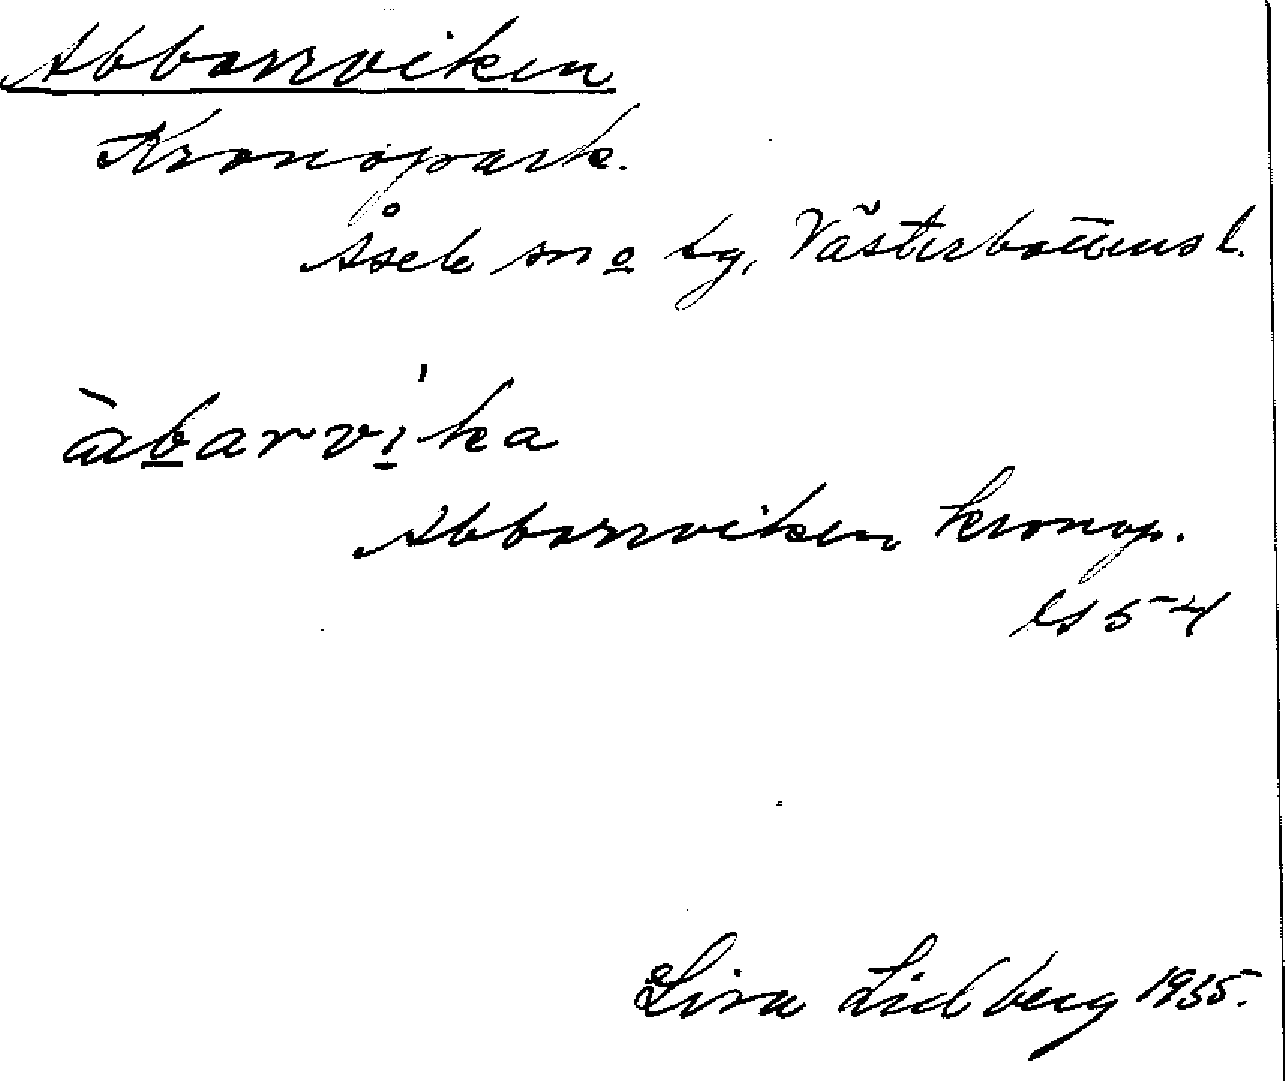 Abborrviken
Kronopark.
Åsele sn o tg, Västerbottens l.
àbarvi̍ka
Abborrviken kronop.
ls 54
Lisa Lidberg 1935.